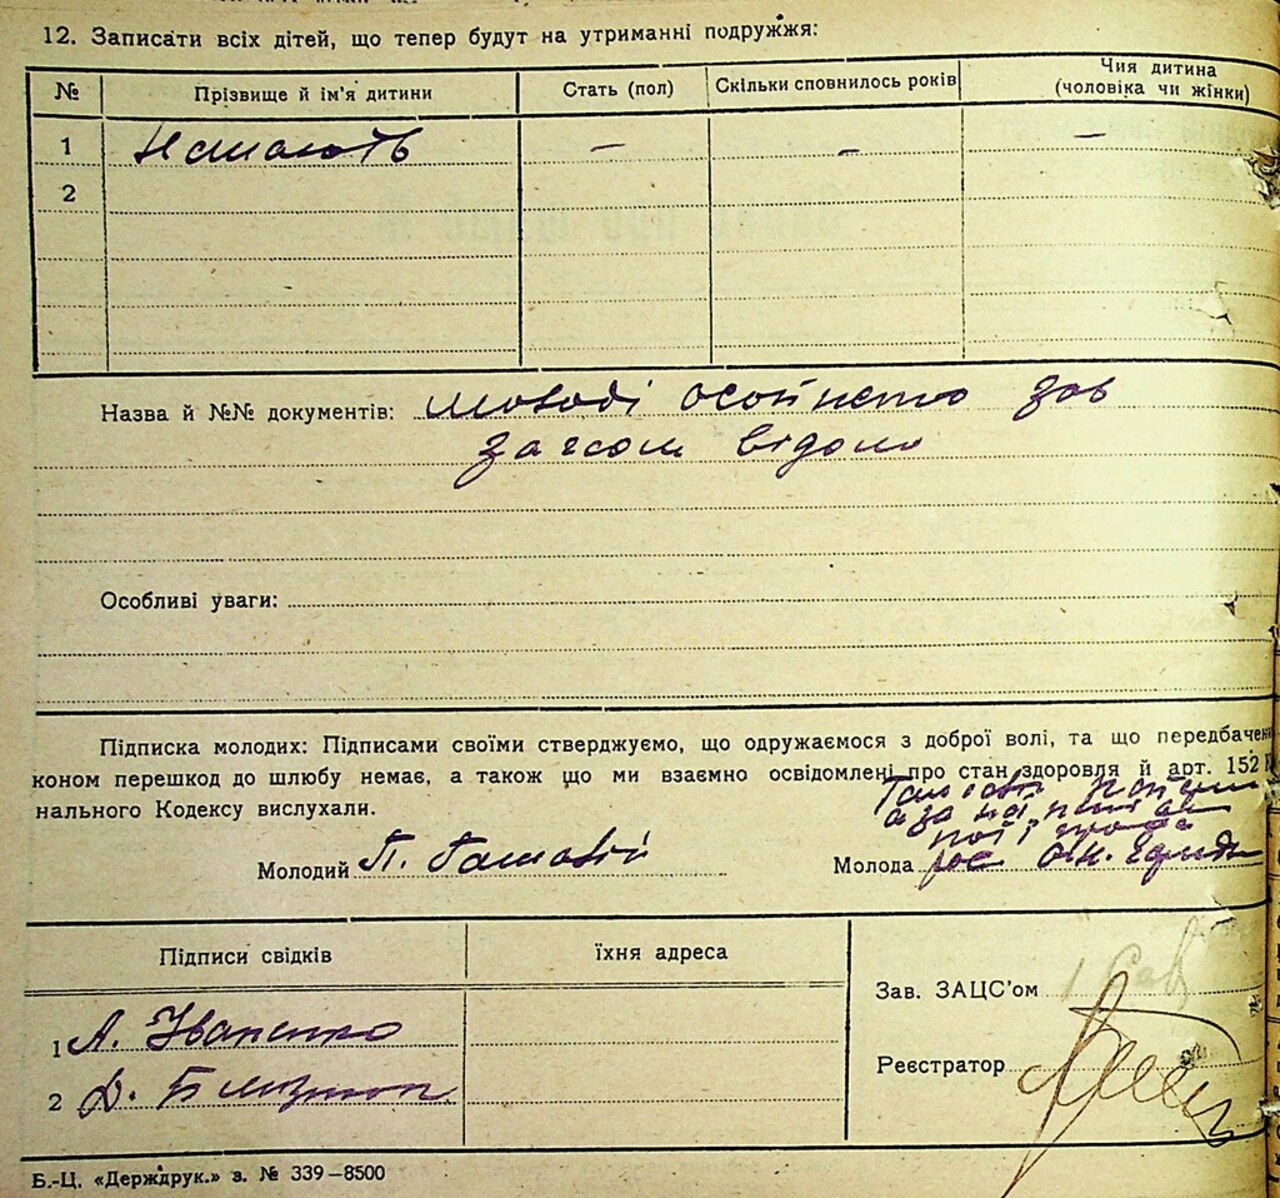 12. Записати всіх дітей, що тепер будут на утриманні подружжя:
№ Прізвище й ім'я дитини Стать (пол) Скільки сповнилось років Чия дитина (чоловіка чи жінки)
1 Немають — — —
2
Назва й №№ документів: молоді особисто зав
загсом відомо
Особливі уваги:
Підписка молодих: Підписами своїми стверджуємо, що одружаємося з доброї волі, та що передбачен
коном перешкод до шлюбу немає, а також що ми взаємно освідомлені про стан здоровля й арт. 152
нального Кодексу вислухали.
а за
Молодий П.
Молода
Підписи свідків їхня адреса
Зав. ЗАЦС'ом
1 А. Іваненко
Реєстратор
2 Д.
Б.-Ц. «Держдрук.» з. № 339—8500